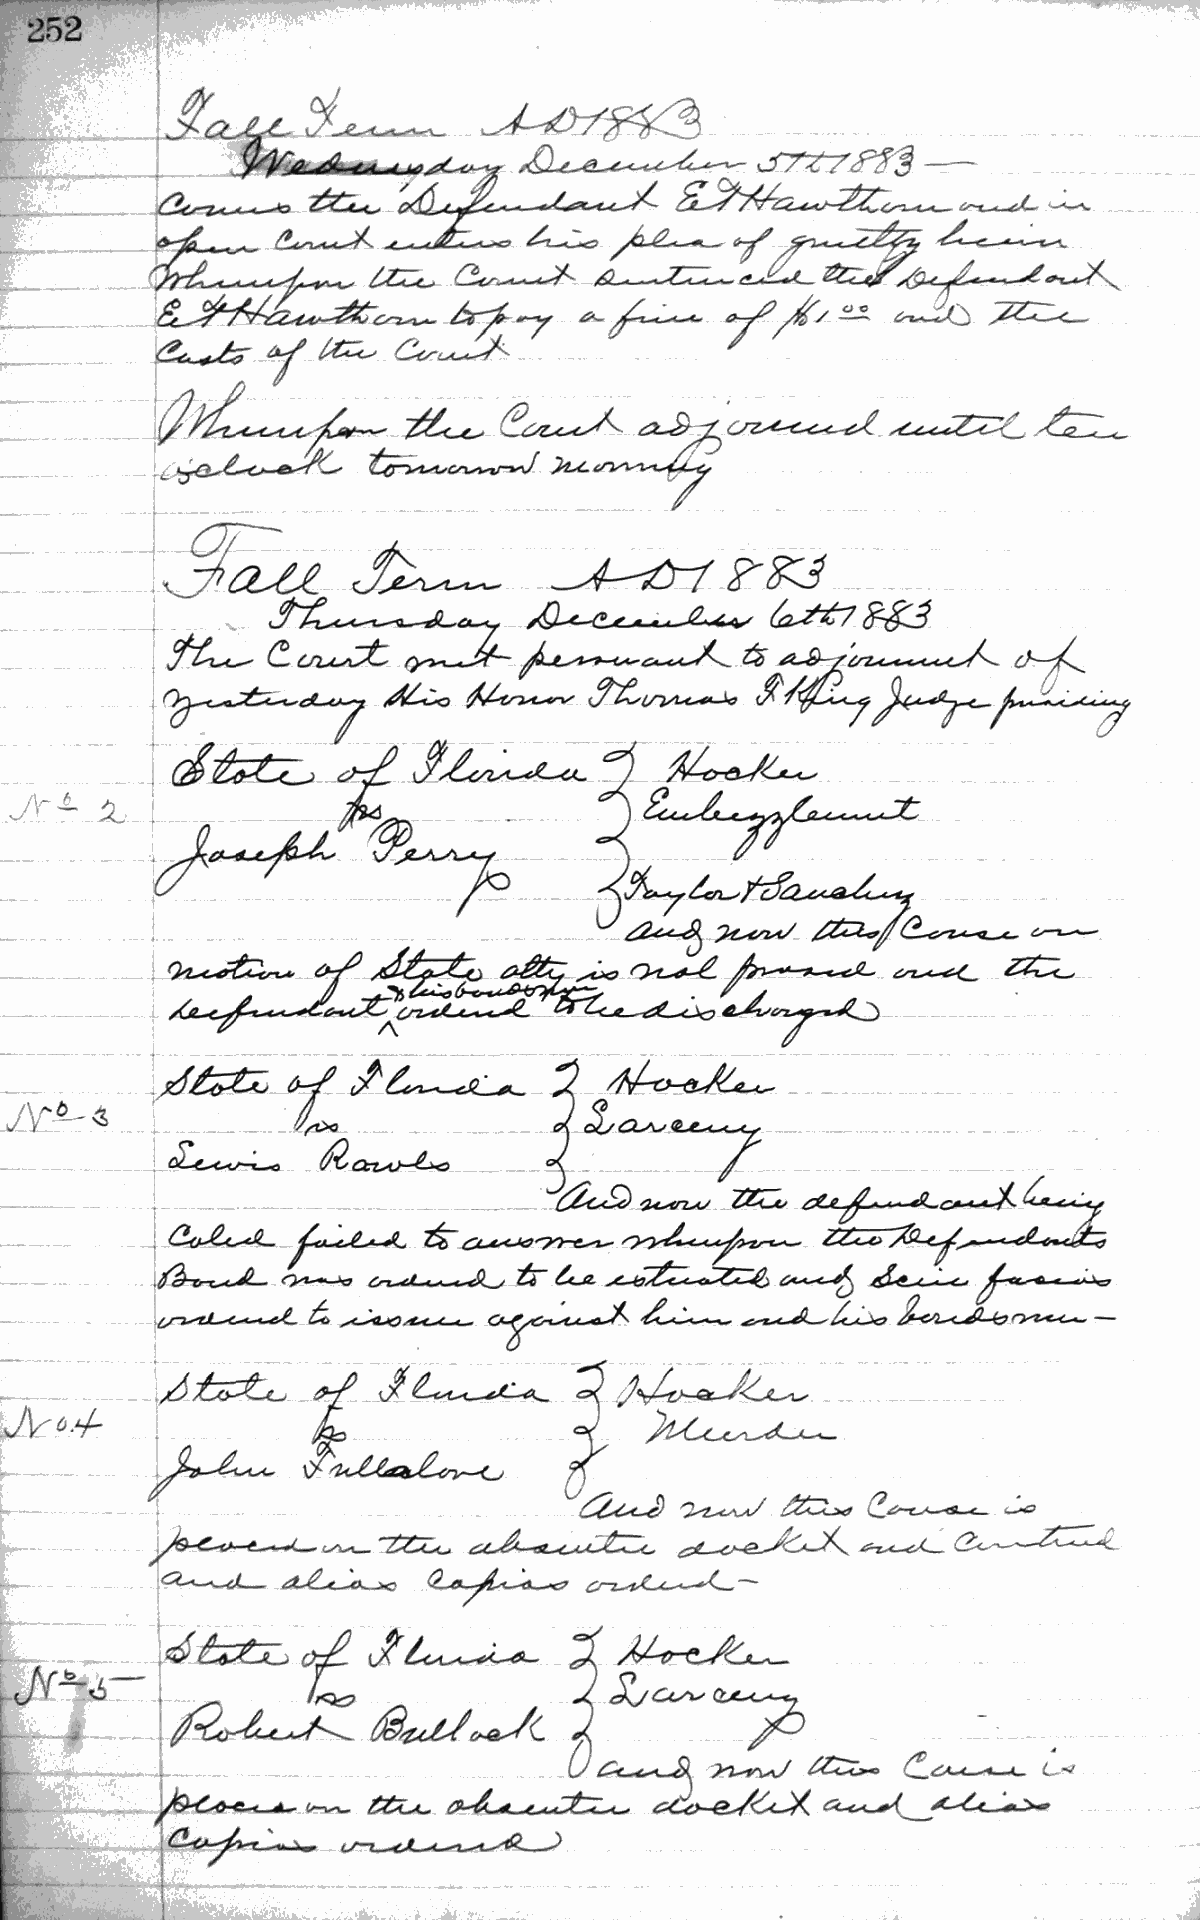 252
Fall Term AD1883
Wednesday December 5th1883 —
Comes the Defendant E F Hawthorn and in
open Court enters his plea of guilty herein
Whereupon the Court sentenced the Defendant
E F Hawthorn to pay a fine of $1 00 and the
Costs of the Court
Whereupon the Court adjourned until ten
o'clock tomorrow morning
Fall Term AD1883
Thursday December 6th1883
The Court met persuant to adjournment of
yesterday His Honor Thomas F King Judge presiding
State of Florida } Hocker
No 2 vs } Embezzlement
Joseph Perry }
Taylor & Sanchez
and now this Cause on
motion of State atty is nol prossed and the
& his bondsmen
defendant ^ ordered to be discharged
State of Florida } Hocker
No 3 vs } Larceny
Lewis Rawls }
And now the defendant being
Caled failed to answer whereupon the Defendants
Bond was ordered to be estreated and Scire facias
ordered to issue against him and his bondsmen —
State of Florida } Hocker
No. 4 vs } Murder
John Fullalove }
And now this Cause is
placed on the absentee docket and Continued
and alias Capias ordered —
State of Florida } Hocker
No 5 vs } Larceny
Robert Bullock }
and now this Cause is
placed on the absentee docket and alias
Capias ordered